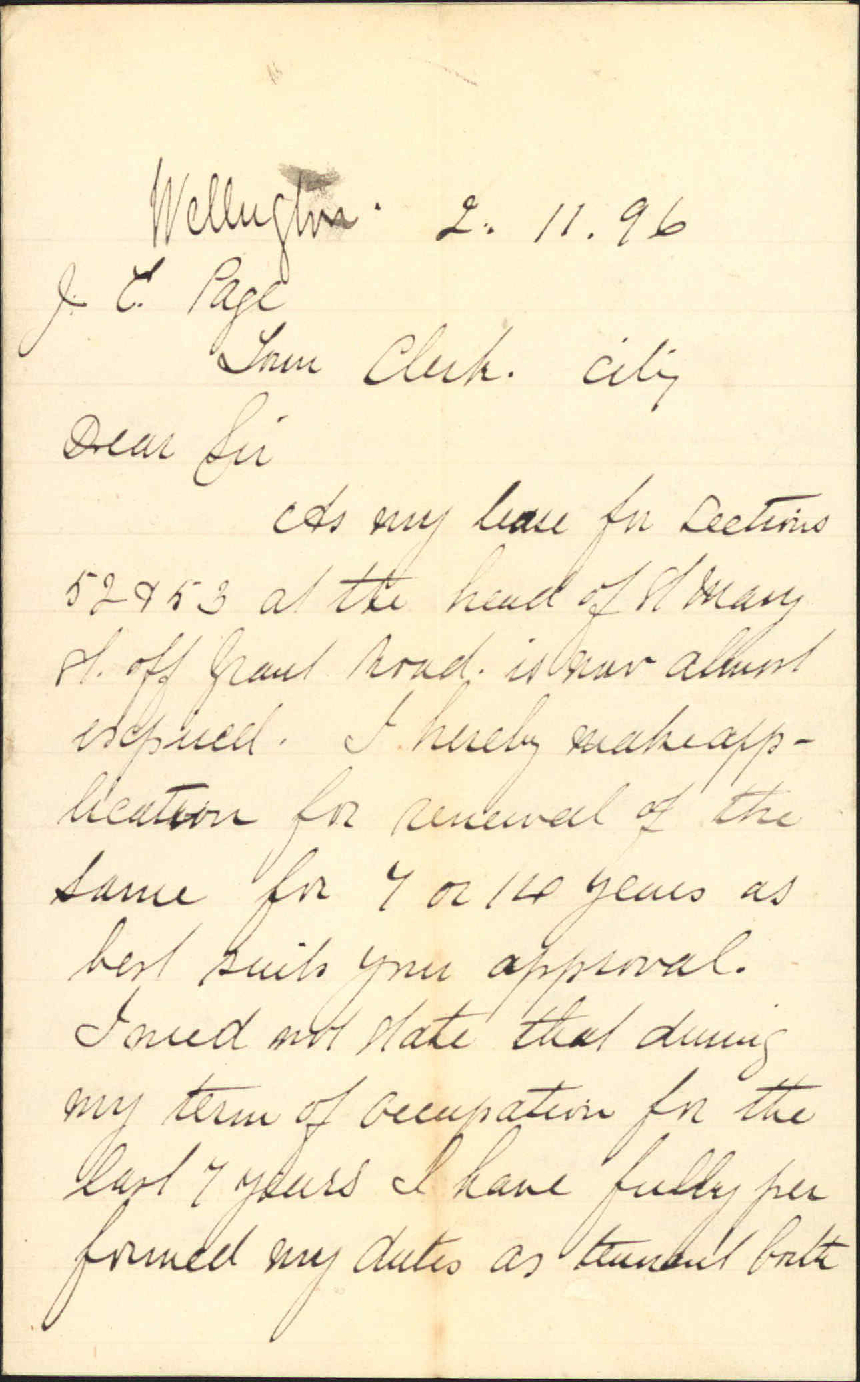 Wellington. 2. 11. 96
J. C. Page
Town Clerk. City
Dear Sir
As my lease for Sections
52 & 53 at the head of St Mary
St. off Grant Road. is now almost
expired. I hereby make app-
lication for renewal of the
same for 7 or 14 years as
best suits your approval.
I need not state that during
my term of occupation for the
last 7 years I have fully per
formed my duties as tennant both